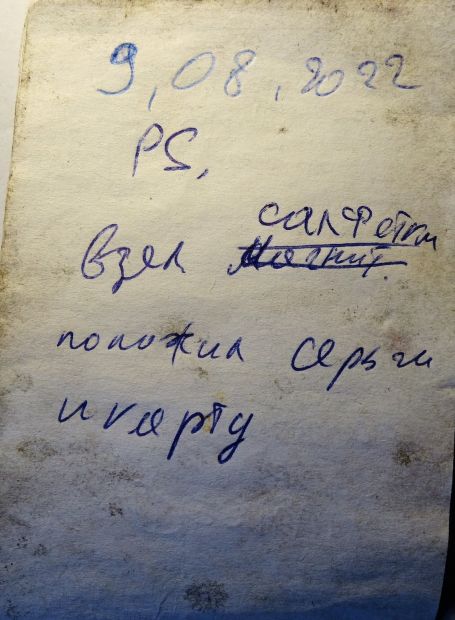 9,08,2022
PS,
салфетки
взял
положил серьги
и карту